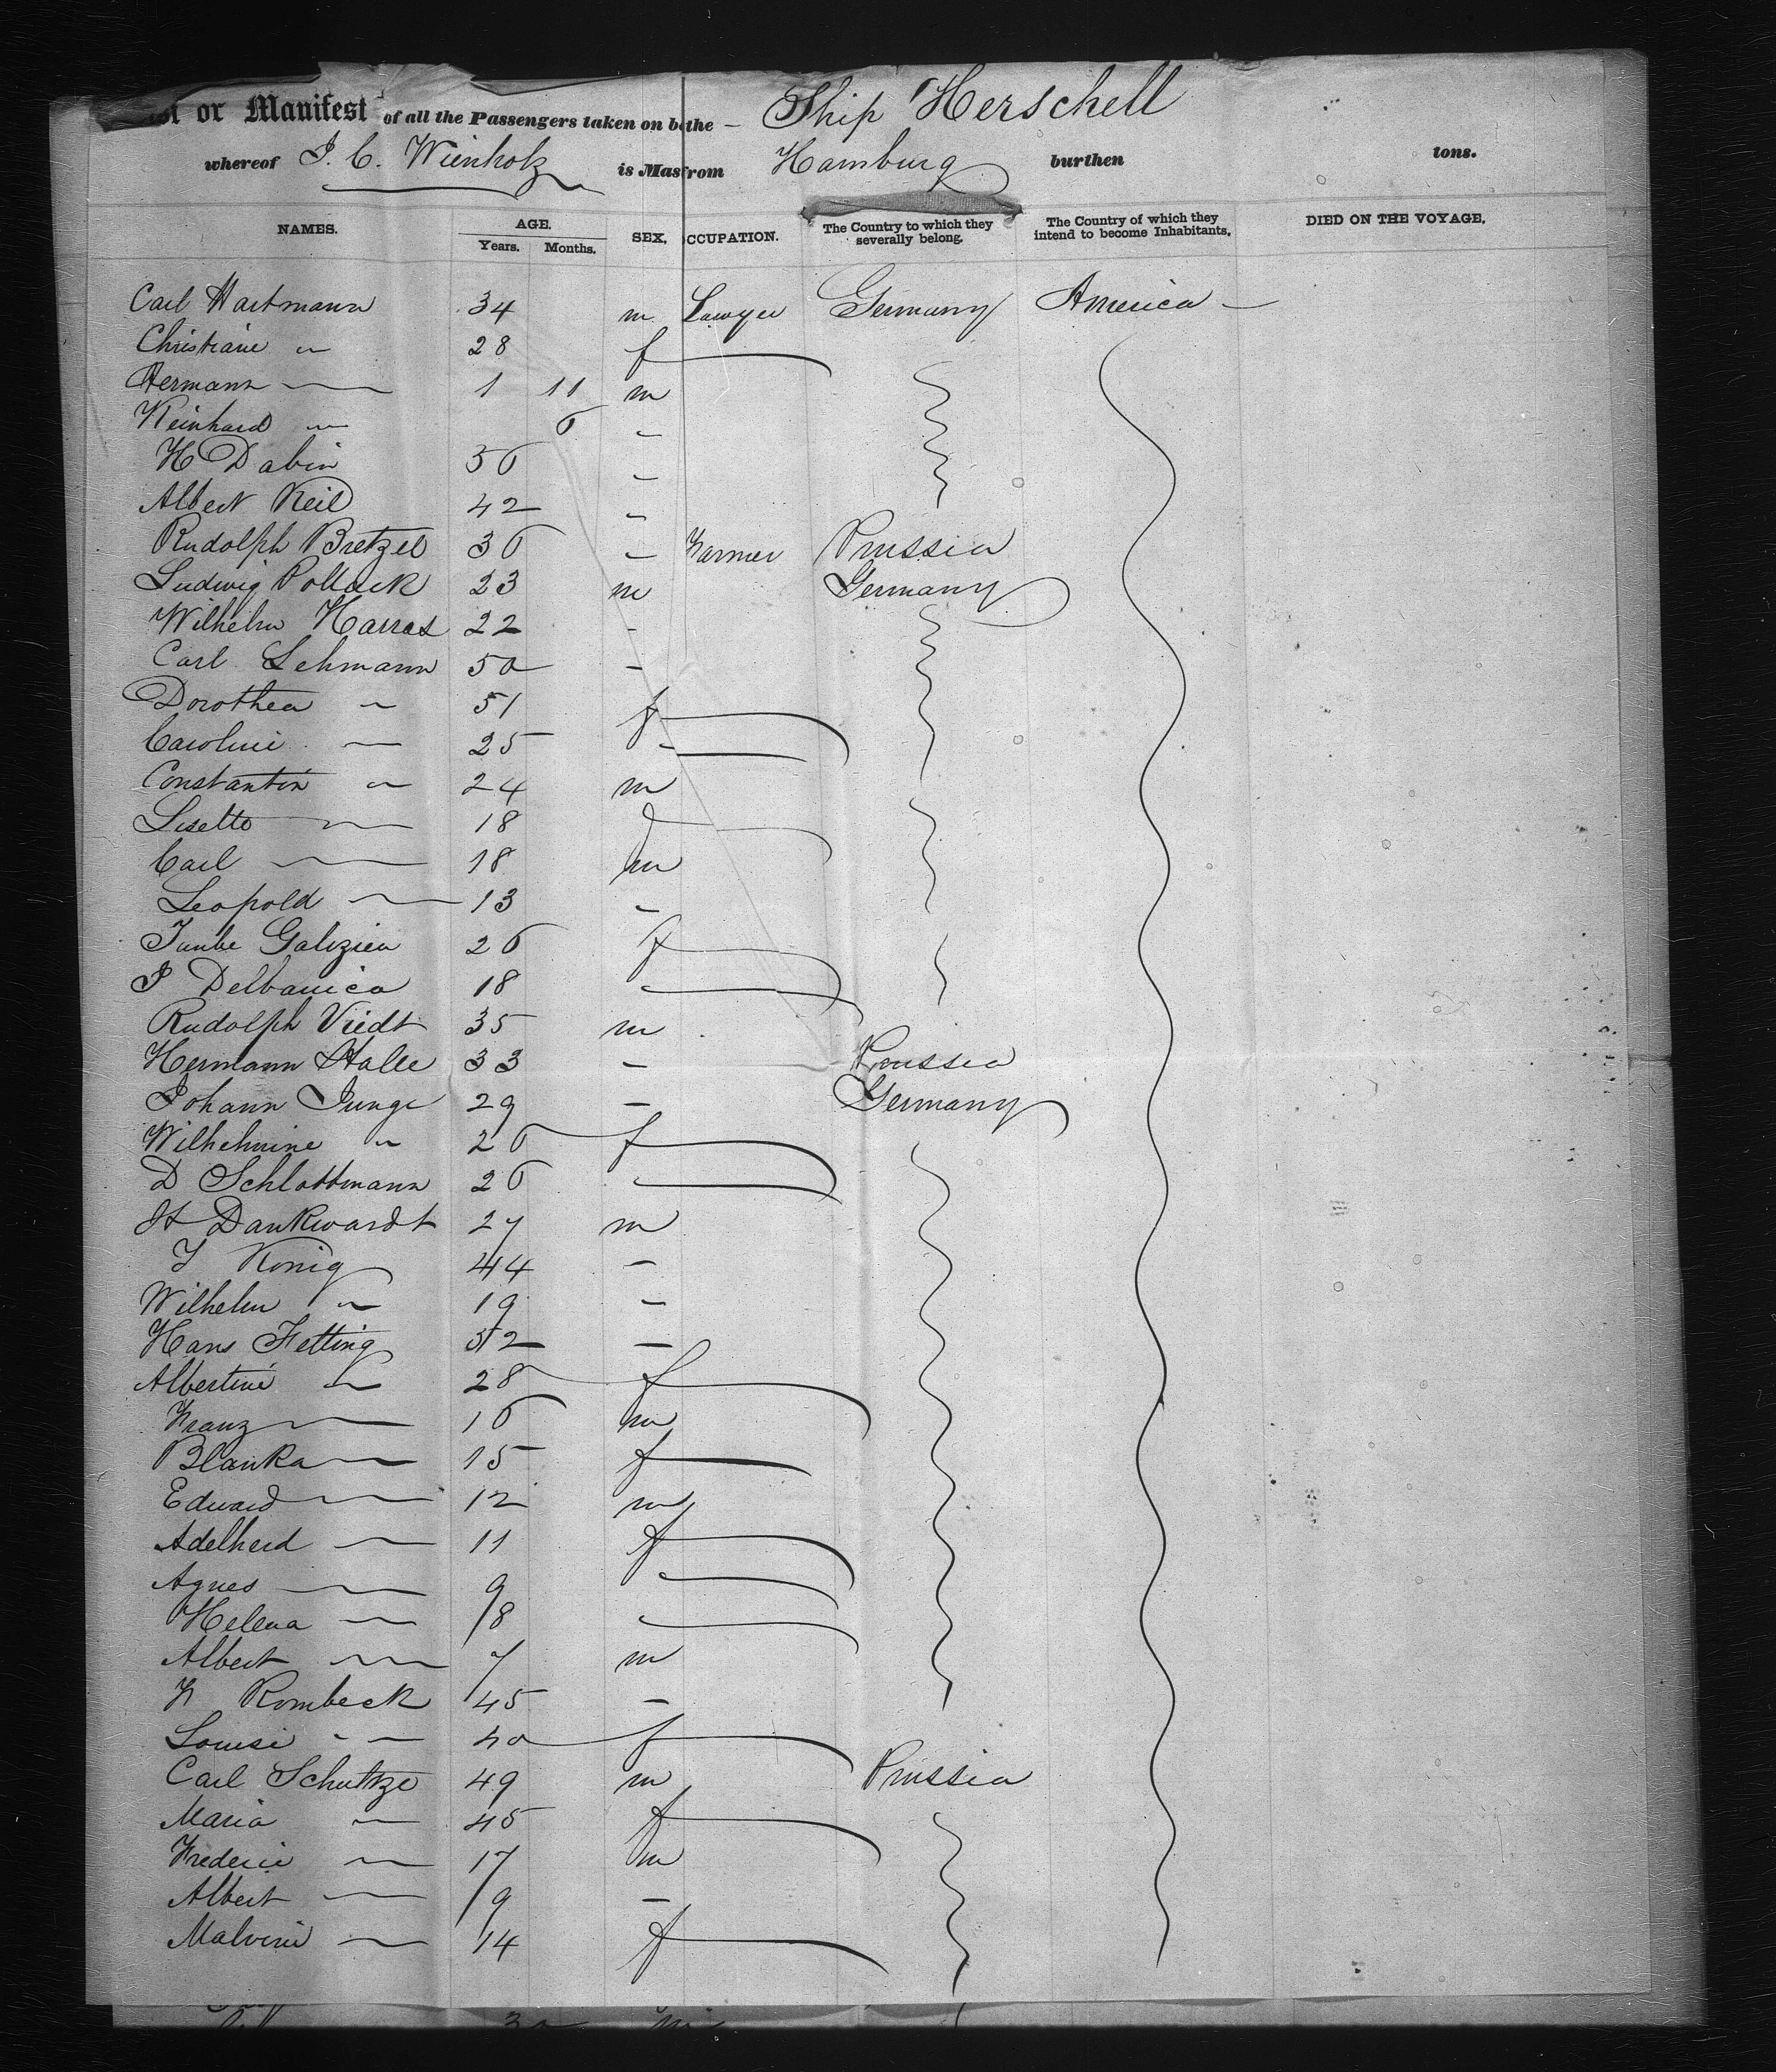 or Manifest of all the Passengers taken on b the — Ship Herschell
whereof J. C. Wienholz is Mas from Hamburg burthen tons.
NAMES. AGE. Years. Months. SEX. CCUPATION. The Country to which they severally belong. The Country of which they intend to become Inhabitants. DIED ON THE VOYAGE.
Carl Hartmann 34 m Lawyer Germany America —
Christiane " 28 f
Hermann — 1 11 m
Reinhard " 6 –
H Dabin 36 –
Albert Keil 42 –
Rudolph Bretzel 36 – Farmer Prussia
Ludwig Pollack 23 m Germany
Wilhelm Harras 22 –
Carl Lehmann 50 –
Dorothea " 51 f
Caroline — 25 –
Constantin " 24 m
Lisette — 18 f
Carl — 18 m
Leopold — 13 –
Taube Galizien 26 f
J Delbanico 18 –
Rudolph Viedt 35 m
Hermann Halle 33 – Prussia
Johann Junge 29 – Germany
Wilhelmine " 26 f
D Schlottmann 26 –
H Dankwardt 27 m
J König 44 –
Wilhelm " 19 –
Hans Fetting 52 –
Albertine " 28 f
Franz — 16 m
Blanka — 15 f
Edward — 12 m
Adelheid — 11 f
Agnes — 9 –
Helena — 8 –
Albert — 7 m
F Rombeck 45 –
Louise " — 40 f
Carl Schultze 49 m Prussia
Maria — 45 f
Frederic — 17 m
Albert — 9 –
Malvine — 14 f